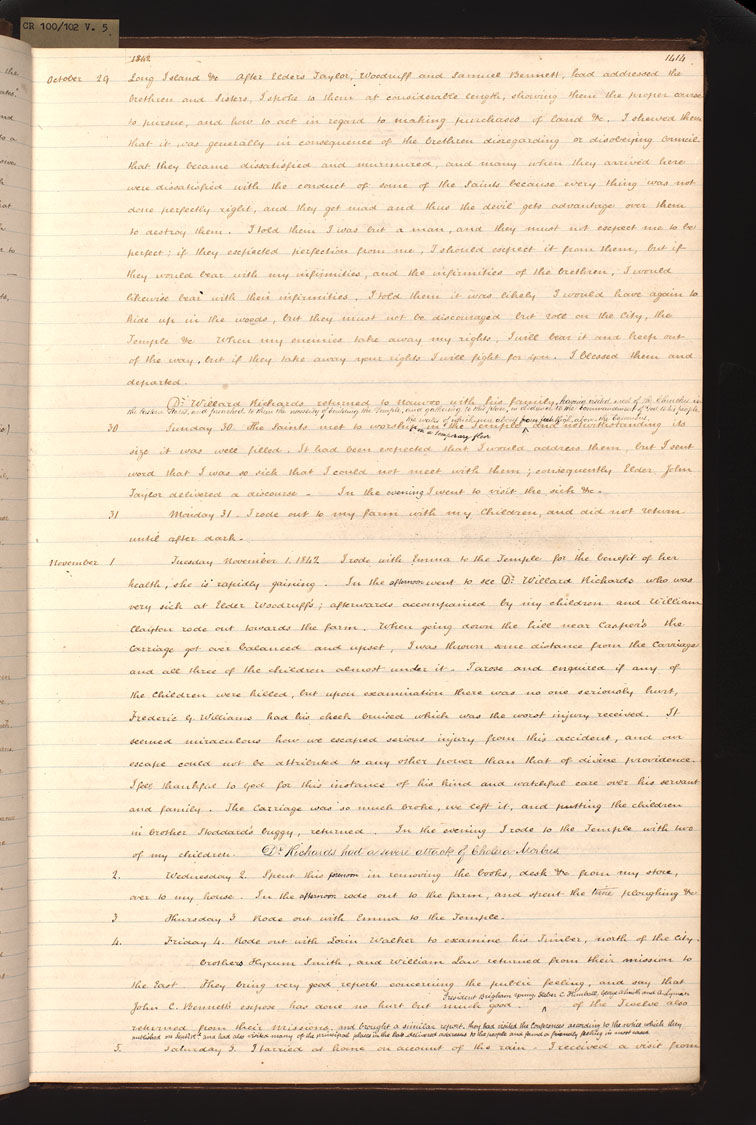 CR 100/102 V. 5
1842 1414
October 29 Long Island &c After Elders Taylor, Woodruff and Samuel Bennett, had addressed the
brethren and Sisters, I spoke to them at considerable length, showing them the proper course
to pursue, and how to act in regard to making purchases of land &c. I shewed them
that it was generally in consequence of the brethren disregarding or disobeying council
that they became dissatisfied and murmured, and many when they arrived here
were dissatisfied with the conduct of some of the Saints because every thing was not
done perfectly right, and they get mad and thus the devil gets advantage over them
to destroy them. I told them I was but a man, and they must not expect me to be
perfect; if they expected perfection from me, I should expect it from them, but if
they would bear with my infirmities, and the infirmities of the brethren, I would
likewise bear with their infirmities. I told them it was likely I would have again to
hide up in the woods, but they must not be discouraged but roll on the city, the
Temple &c When my enemies take away my rights, I will bear it and keep out
of the way, but if they take away your rights I will fight for you. I blessed them and
departed.
Dr. Willard Richards returned to Nauvoo with his family, having visited most of the Churches in
the Eastern States, and preached to them the necessity of building the Temple, and gathering to this place, in obedience to the commandment of God to his people,
30 Sunday 30. The Saints met to worship in the Temple ^ and notwithstanding its
on a temporary floor
size it was well filled. It had been expected that I would address them, but I sent
word that I was so sick that I could not meet with them; consequently Elder John
Taylor delivered a discourse. In the evening I went to visit the sick &c.
31 Monday 31. I rode out to my farm with my Children, and did not return
until after dark.
November 1 Tuesday November 1. 1842 I rode with Emma to the Temple for the benefit of her
health, she is rapidly gaining. In the afternoon went to see Dr Willard Richards who was
very sick at Elder Woodruff's; afterwards accompanied by my children and William
Clayton rode out towards the farm. When going down the hill near Casper's the
Carriage got over balanced and upset, I was thrown some distance from the Carriage
and all three of the children almost under it. I arose and enquired if any of
the Children were killed, but upon examination there was no one seriously hurt,
Frederic G. Williams had his cheek bruised which was the worst injury received. It
seemed miraculous how we escaped serious injury from this accident, and our
escape could not be attributed to any other power than that of divine providence.
I feel thankful to God for this instance of his kind and watchful care over his servant
and family. The Carriage was so much broke, we left it, and putting the children
in brother Stoddard's buggy, returned. In the evening I rode to the Temple with two
of my children. Dr Richards had a severe attack of Cholera Morbus
2. Wednesday 2. Spent this forenoon in removing the books, desk &c from my store,
over to my house. In the afternoon rode out to the farm, and spent the time ploughing &c
3 Thursday 3 Rode out with Emma to the Temple.
4. Friday 4. Rode out with Lorin Walker to examine his Timber, north of the city.
Brothers Hyrum Smith, and William Law returned from their mission to
the East. They bring very good reports concerning the public feeling, and say that
President Brigham Young, Heber C. Kimball, George A. Smith and A. Lyman
John C. Bennett's expose has done no hurt but much good. ^ of the Twelve also
returned from their missions, and brought a similar report, they had visited the Conferences according to the notice which they
published on and had also visited many of the principal places in the delivered addresses to the people and found a friendly feeling in most cases.
5. Saturday 5. I tarried at home on account of the rain. I received a visit from